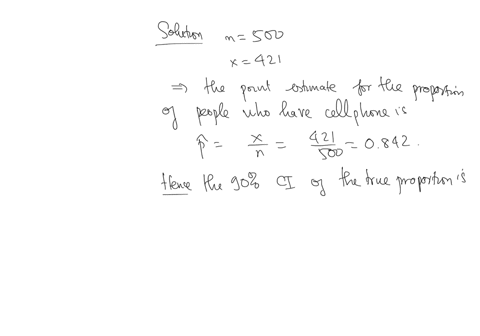 Solution n = 500
x = 421
⇒ the point estimate for the proportion
of people who have cellphone is
p̂ = x/n = 421/500 = 0.842.
Hence the 90% CI of the true proportion is